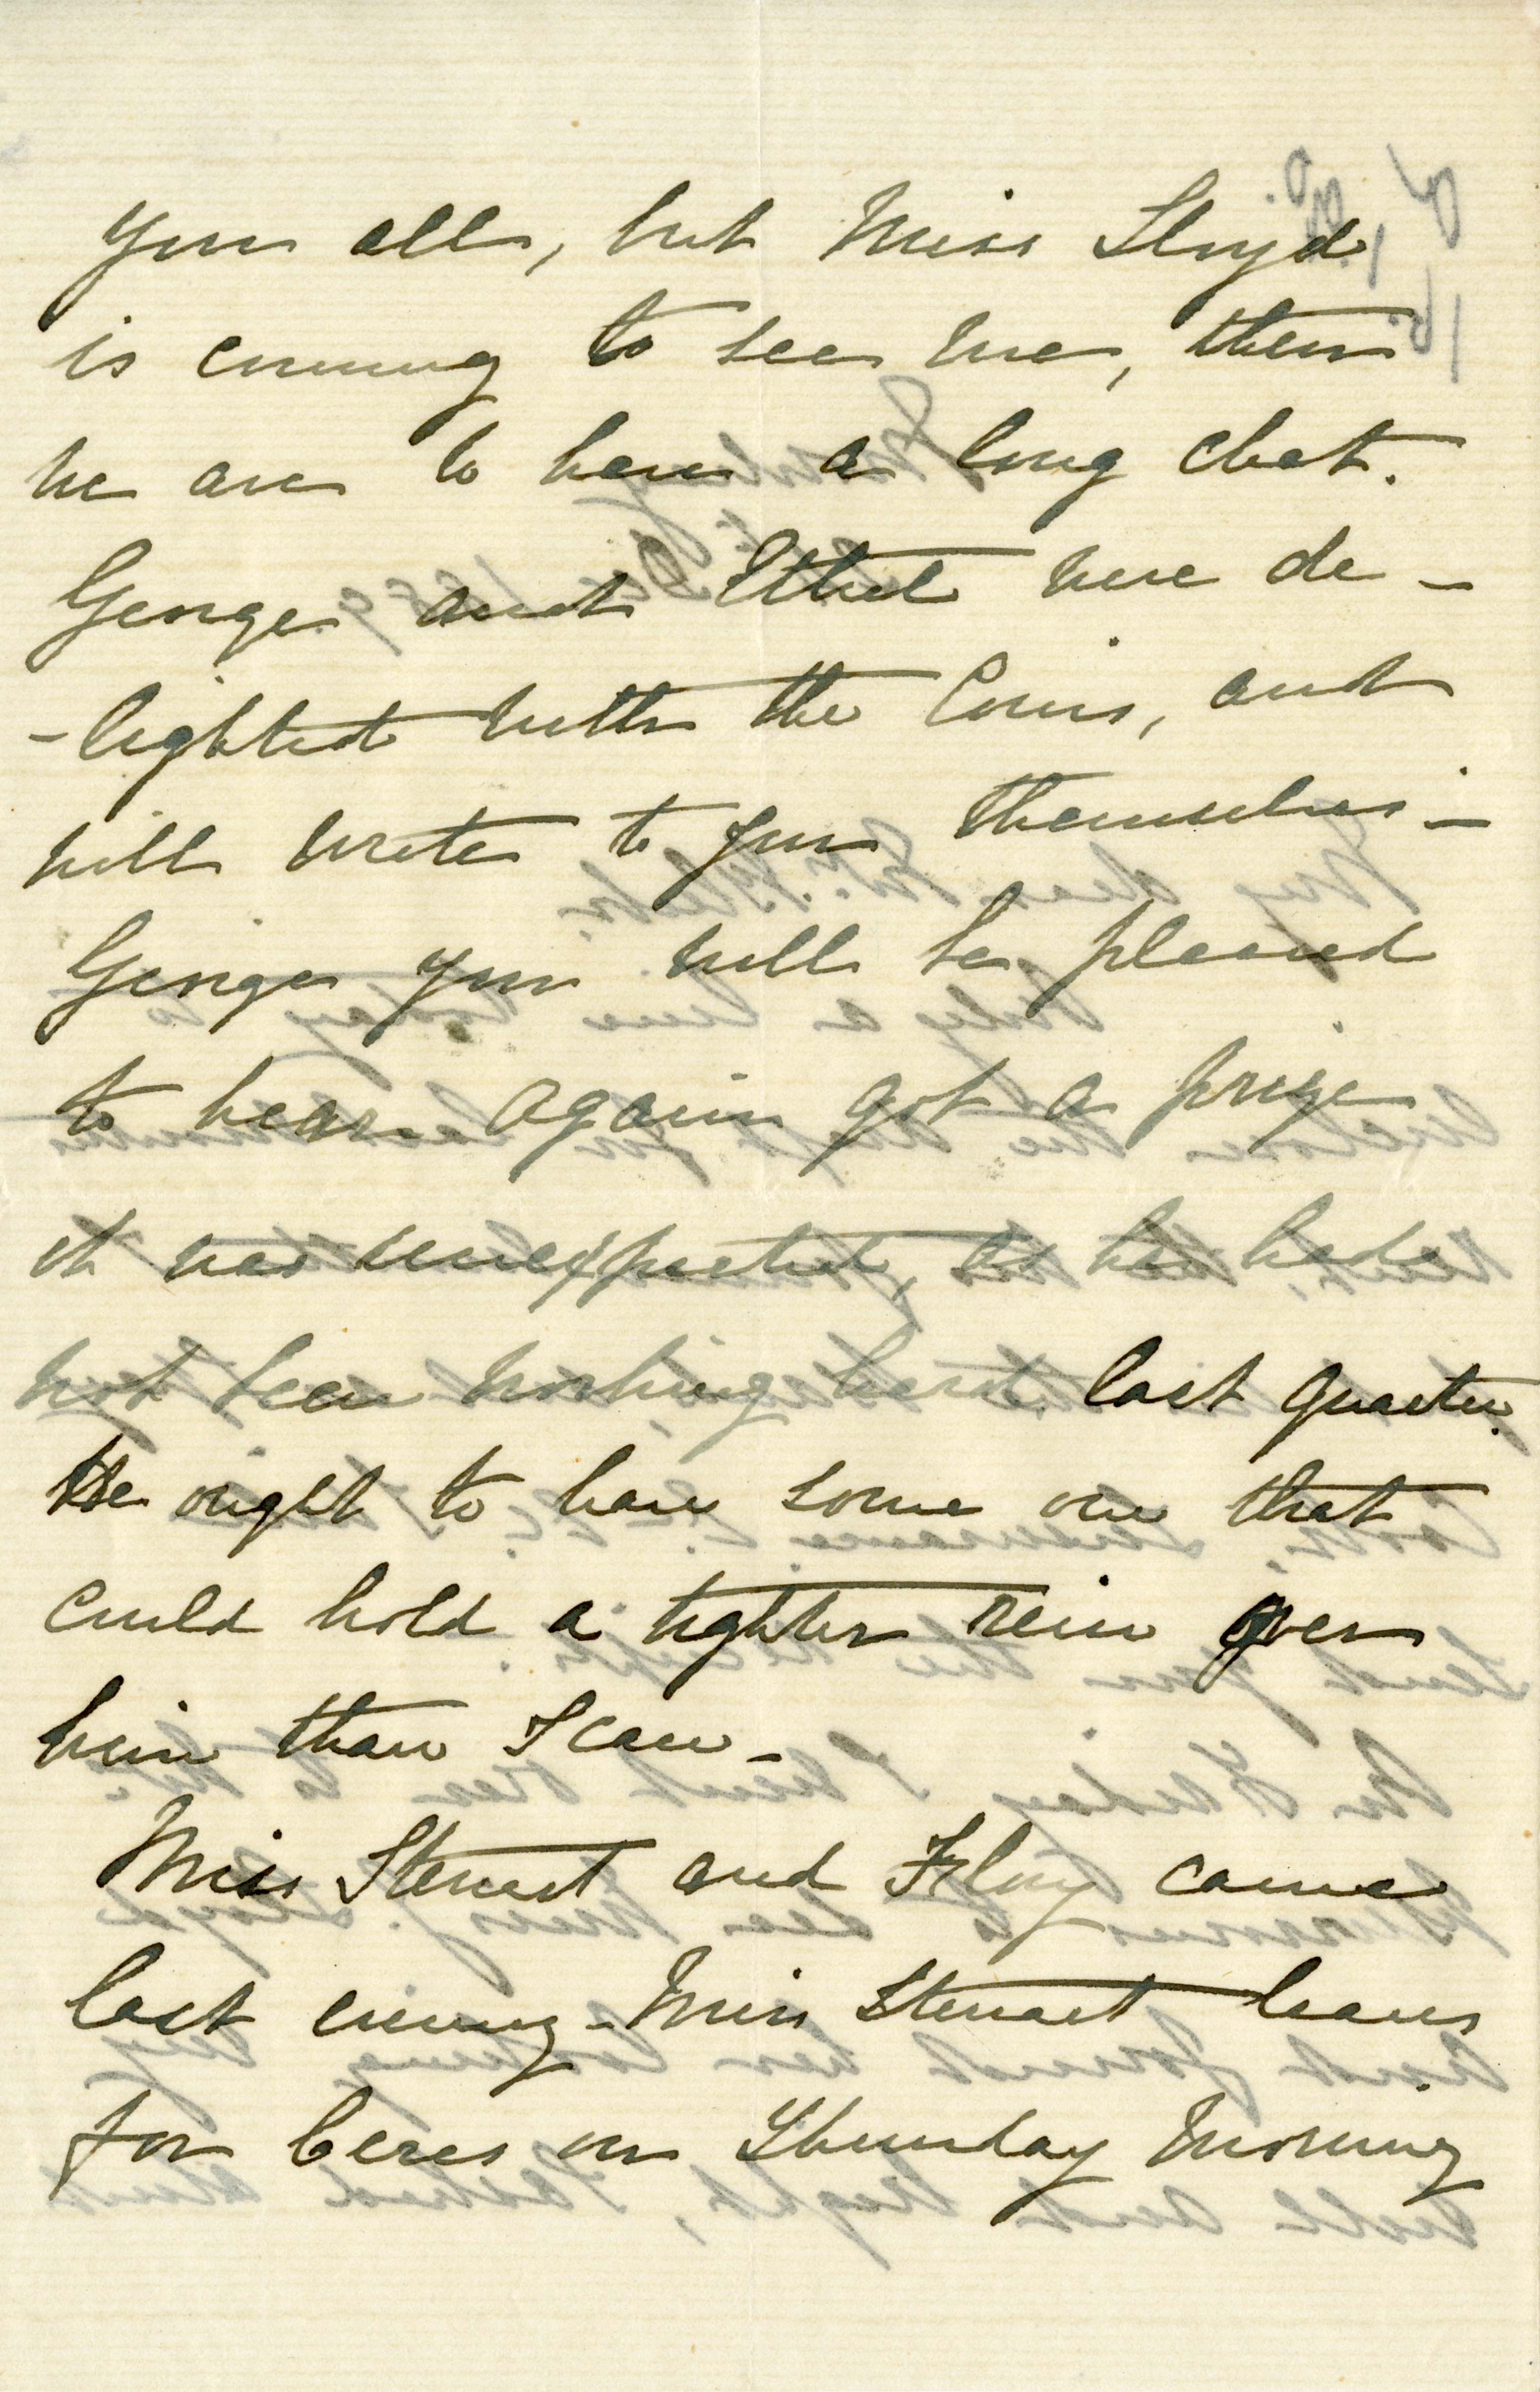 you all, but Miss Lloyd
is coming to see me, then
we are to have a long chat.
George and Ethel were de-
-lighted with the Coins, and
will write to you themselves -
George you will be pleased
to hear again got a prize
it was unexpected, as he had
not been working hard last quarter.
He ought to have some one that
could hold a tighter rein over
him than I can -
Miss Steuart and Floy came
last evening - Miss Steuart leaves
for Ceres on Thursday morning